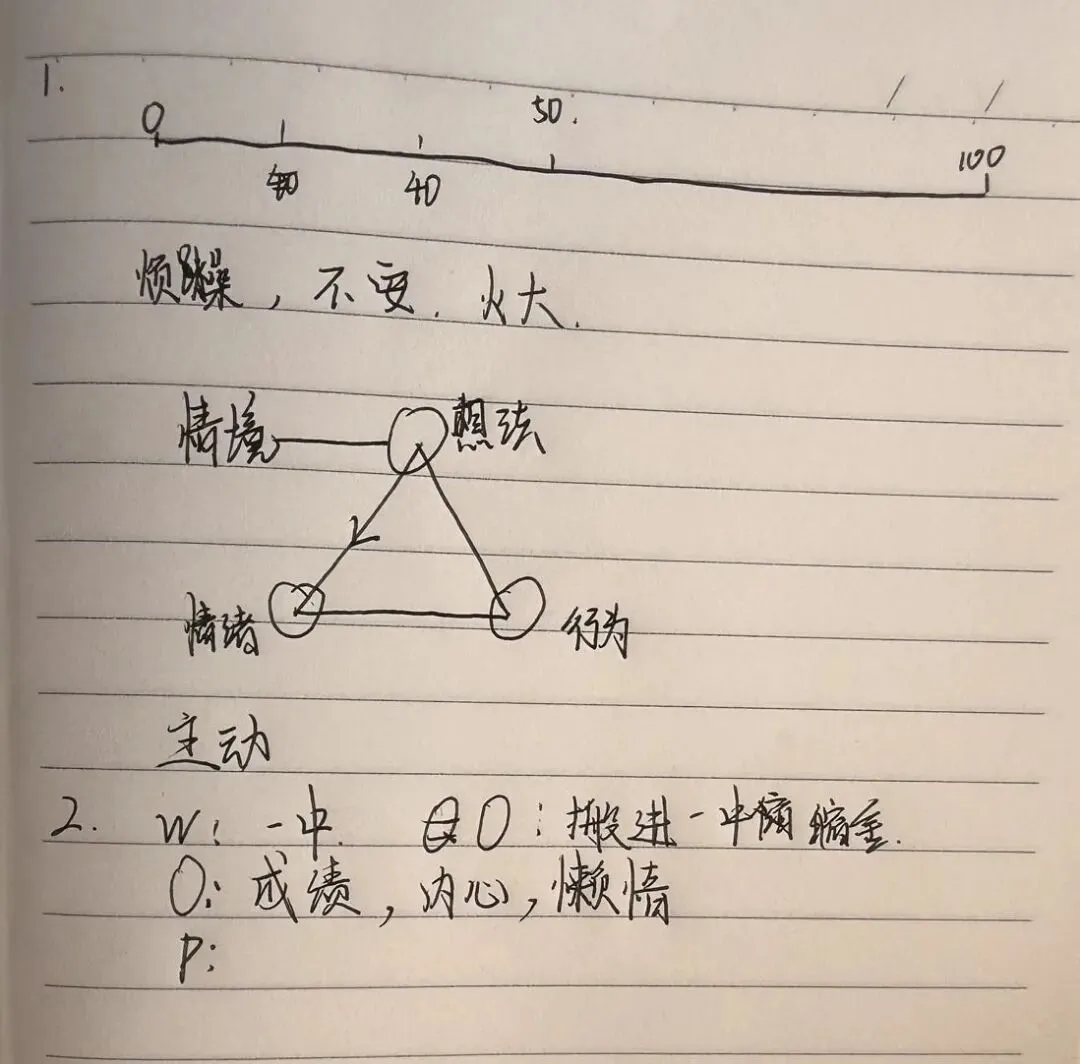 1.
0 50. 100
40
烦躁，不安．火大．
情境 想法
情绪 行为
主动
2. W：一中． O：搬进一中 缩金．
O：成绩，内心，懒惰
P：